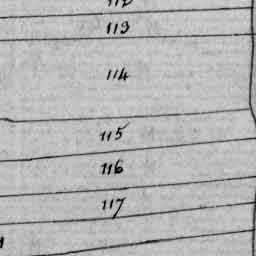 112
113
114
115
116
117